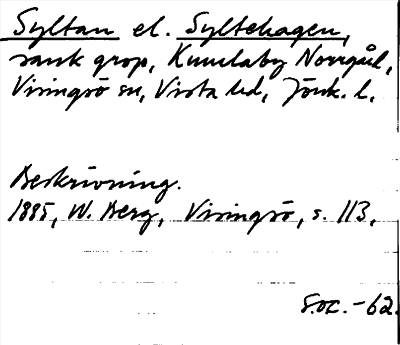 Syltan el. Syltehagen,
sank grop, Kumlaby Norrgård,
Visingsö sn, Vista hd, Jönk. l.
Beskrivning.
1885, W. Berg, Visingsö, s. 113.
S.oc. -62.